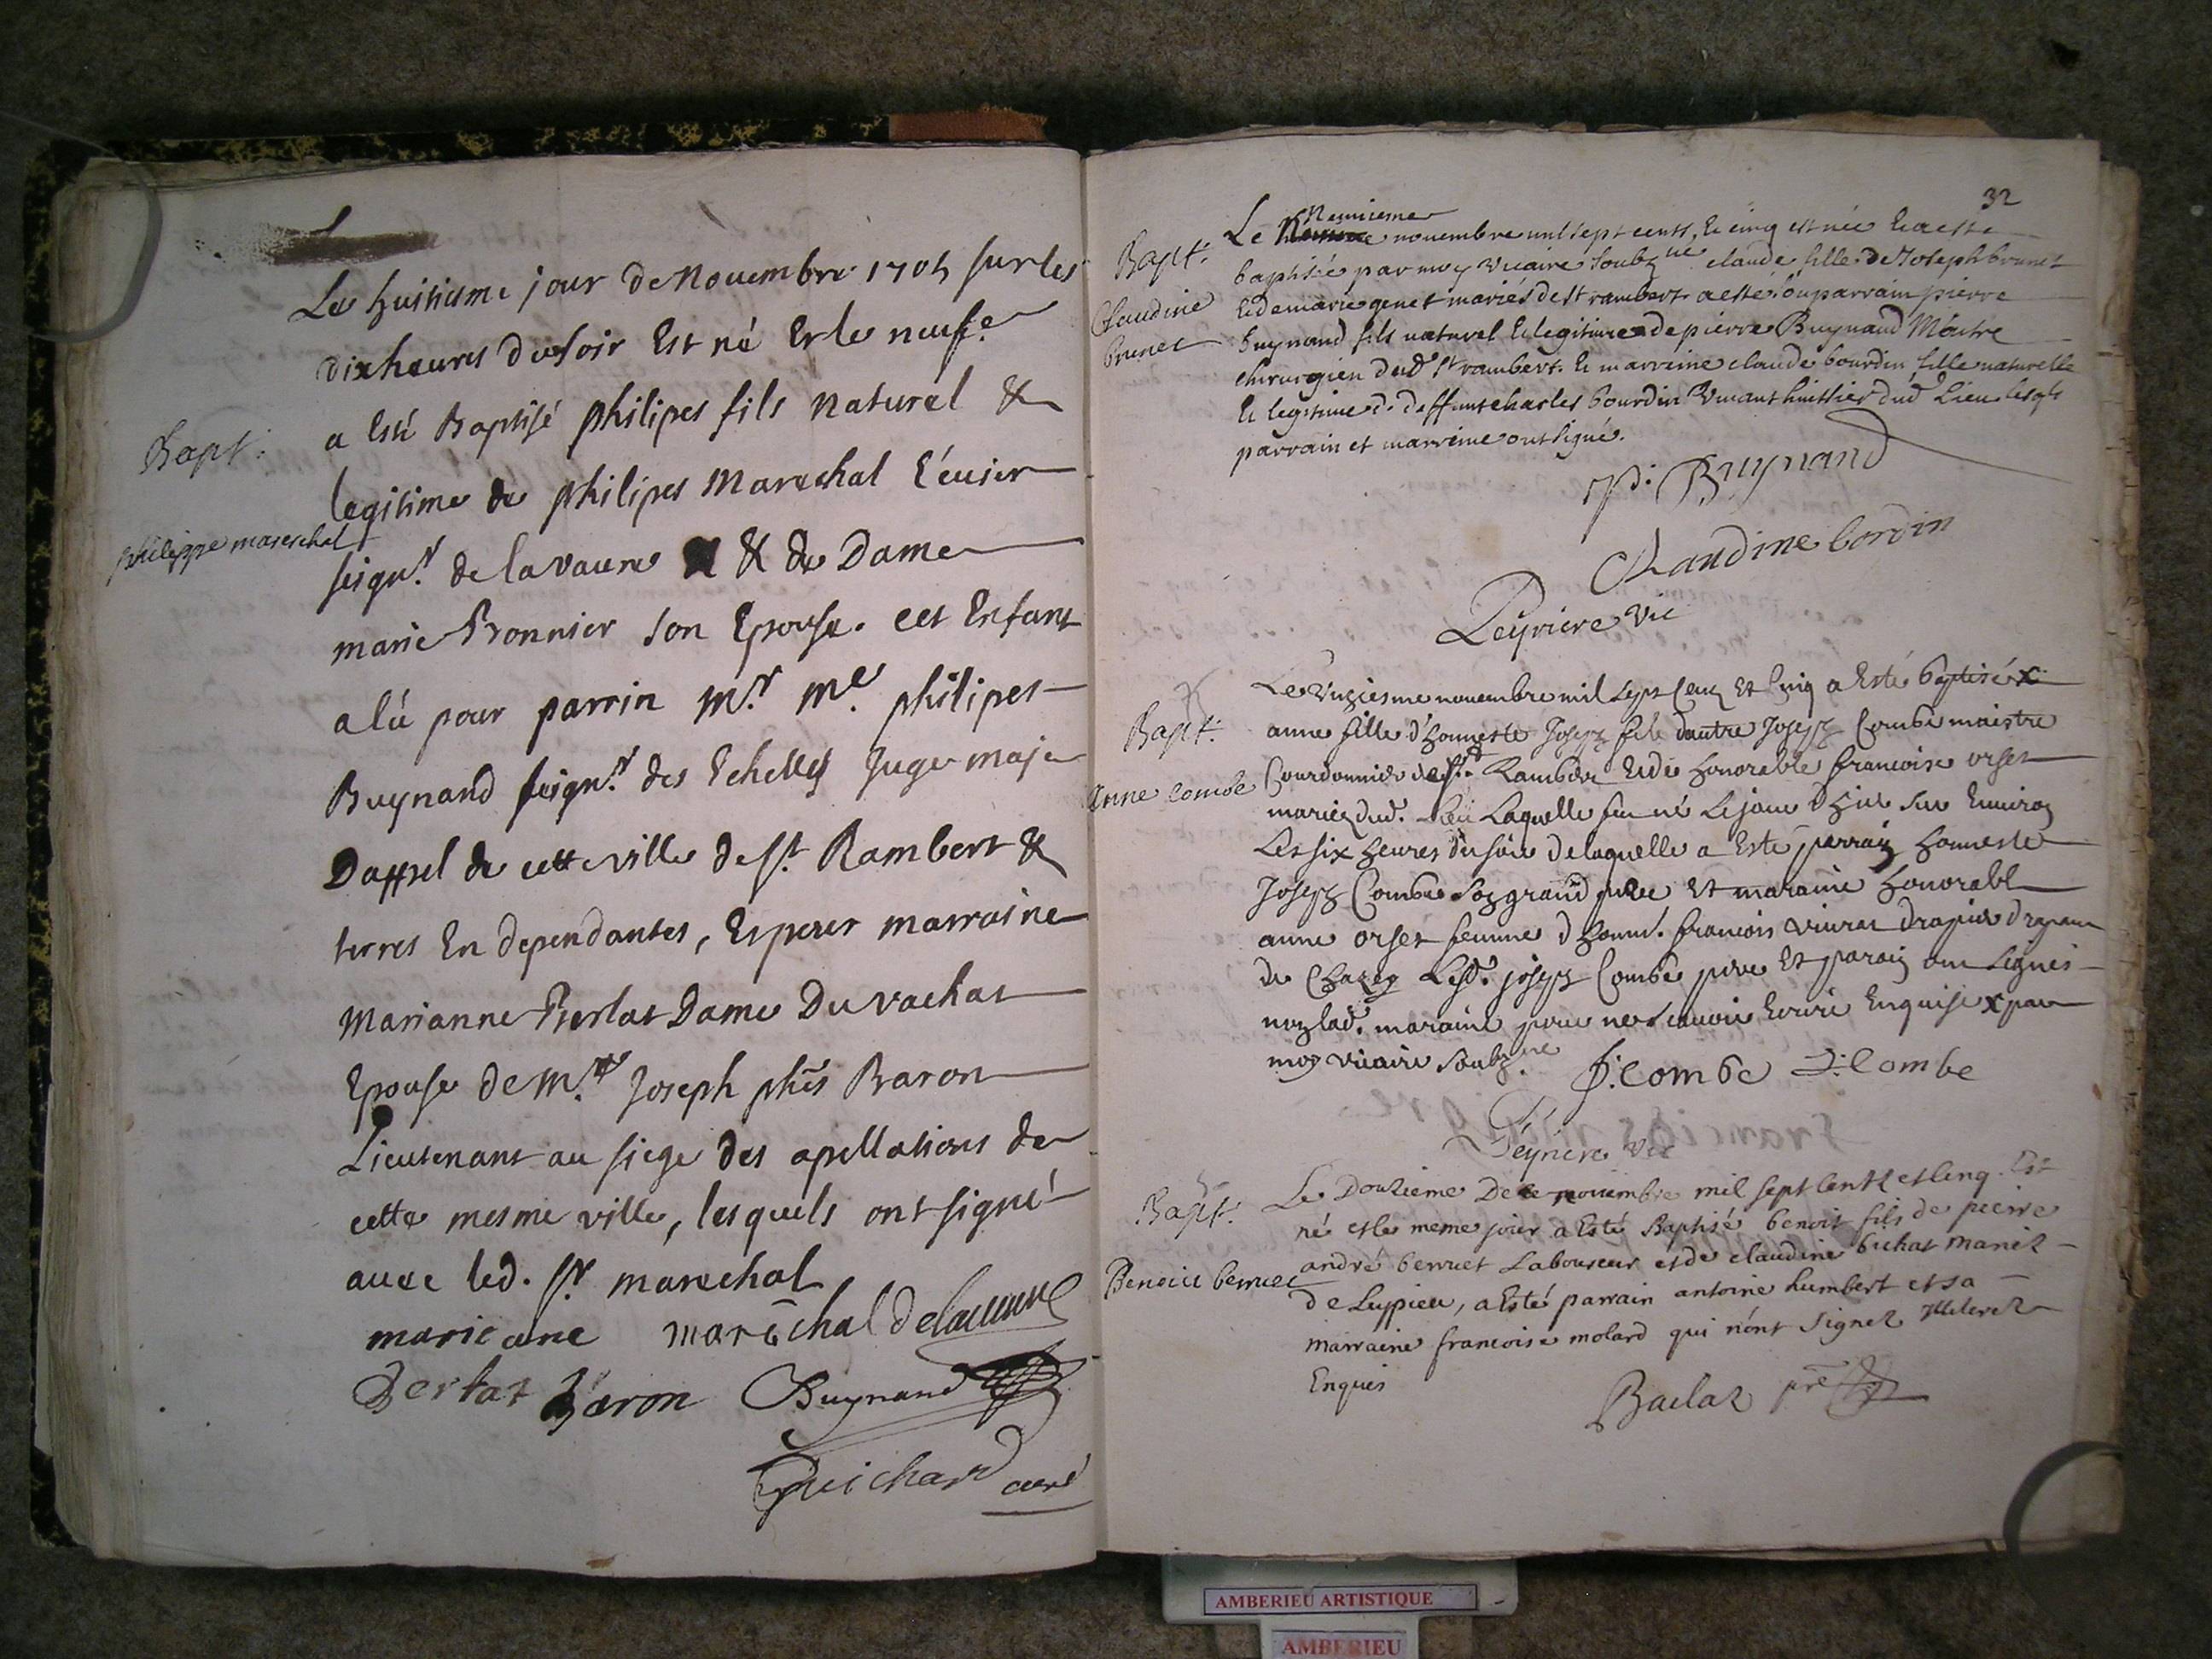 Le huitiesme jour de Novembre 1705 sur les
dix heures du soir Est né Et le neufe
a Esté Baptisé philipes fils naturel &
legitime de philipes Marechal Ecuier
seignr. de la vavre & de Dame
marie Bronnier son Epouse. cet Enfant
a Eü pour parrin Mr. Me. philipes
Buynand seignr. des Echelles Juge maje
Dappel de cette ville de St. Rambert &
terres En dependantes, Et pour marraine
Marianne Berlat Dame Du vachat
Epouse de Mr. Joseph phēs Baron
Lieutenant au siege des apellations de
cette mesme ville, lesquels ont signé
avec led. sr. marechal
marie ane marēchal Delavavre
Berlat Baron Buynand
Guichard curé
Bapt.
philippe mareschal
32
Le Neuvieme novembre mil sept cents, et cinq est née et a esté
baptisée par moy vicaire soubzné claude fille de Joseph brunet
et de marie genet mariés de st rambert a esté son parrain pierre
Buynand fils naturel et legitime de pierre Buynand Maitre
chirurgien dud st rambert. et marreine claude bourdin fille naturelle
et legitime de deffunt charles bourdin vivant huissier dud Lieu lesqls
parrain et marreine ont signé.
Bapt.
Claudine
brunet
pi. Buynand
Claudine bordin
Peyriere vic
Le unziesme novembre mil sept cenz Et cinq a Esté baptisée
anne fille d'honneste Joseph fils dautre Joseph Combe maistre
Courdonnier de St. Rambert Et de honorable francoise orset
mariez dud. Lieu Laquelle feu né Le jour d'hier sur Environ
Les six heures du soir de laquelle a Esté parrain honneste
Joseph Combe son grand pere Et maraine honorable
anne orset femme d honne. francois vivier drapier drapant
de Chazey Lesd. joseph Combe pere Et parain ont signés
non lad. maraine pour ne scavoir Ecrire Enquise par
moy vicaire soubzné
Bapt.
Anne combe
J: Combe J: Combe
Peyriere vic
Le Douzieme De novembre mil sept centz et cinq Est
né et le meme jour a Esté Baptisé benoit fils de pierre
andré berruet Laboureur et de claudine bichat mariez
de Luppieu, a Esté parrain antoine humbert et sa
marraine francoise molard qui n'ont signez illiterez
Enquis
Bapt.
Benoiit berruet
Baclaz pre
AMBERIEU ARTISTIQUE
AMBERIEU